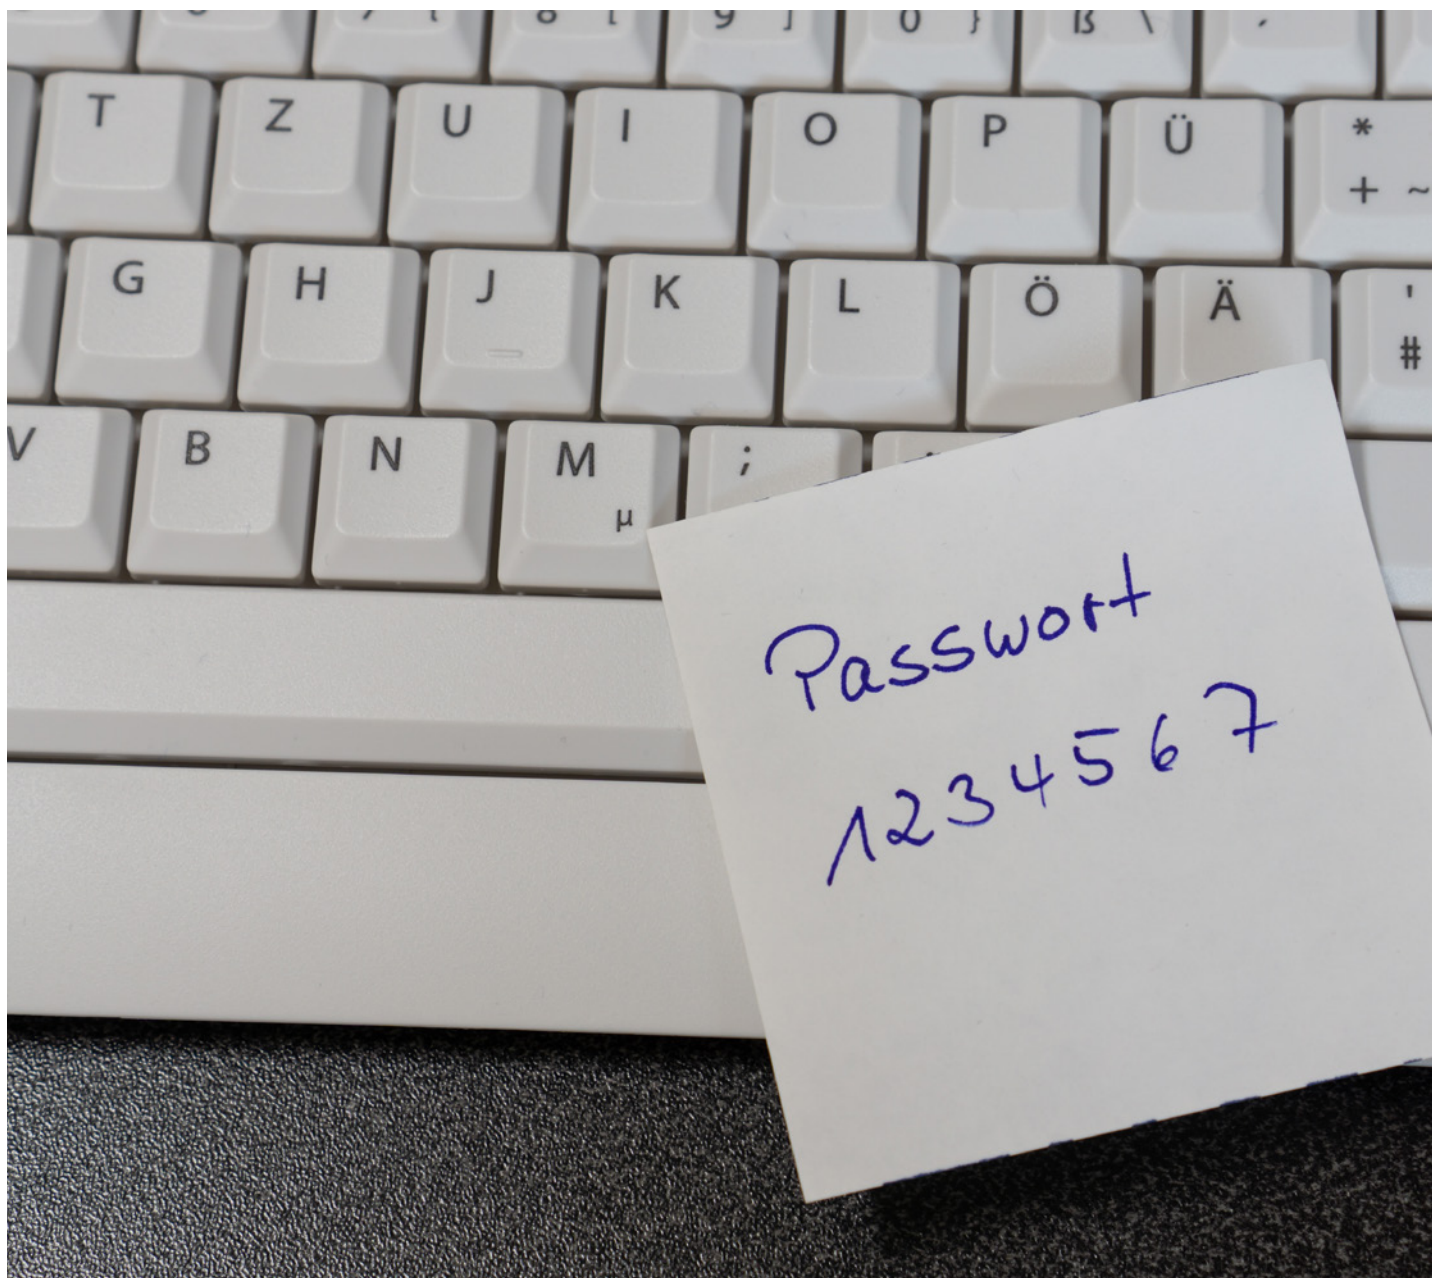 7 { 8 [ 9 ] 0 } ß \ ´
T Z U I O P Ü * + ~
G H J K L Ö Ä ' #
V B N M µ ;
Passwort
1234567